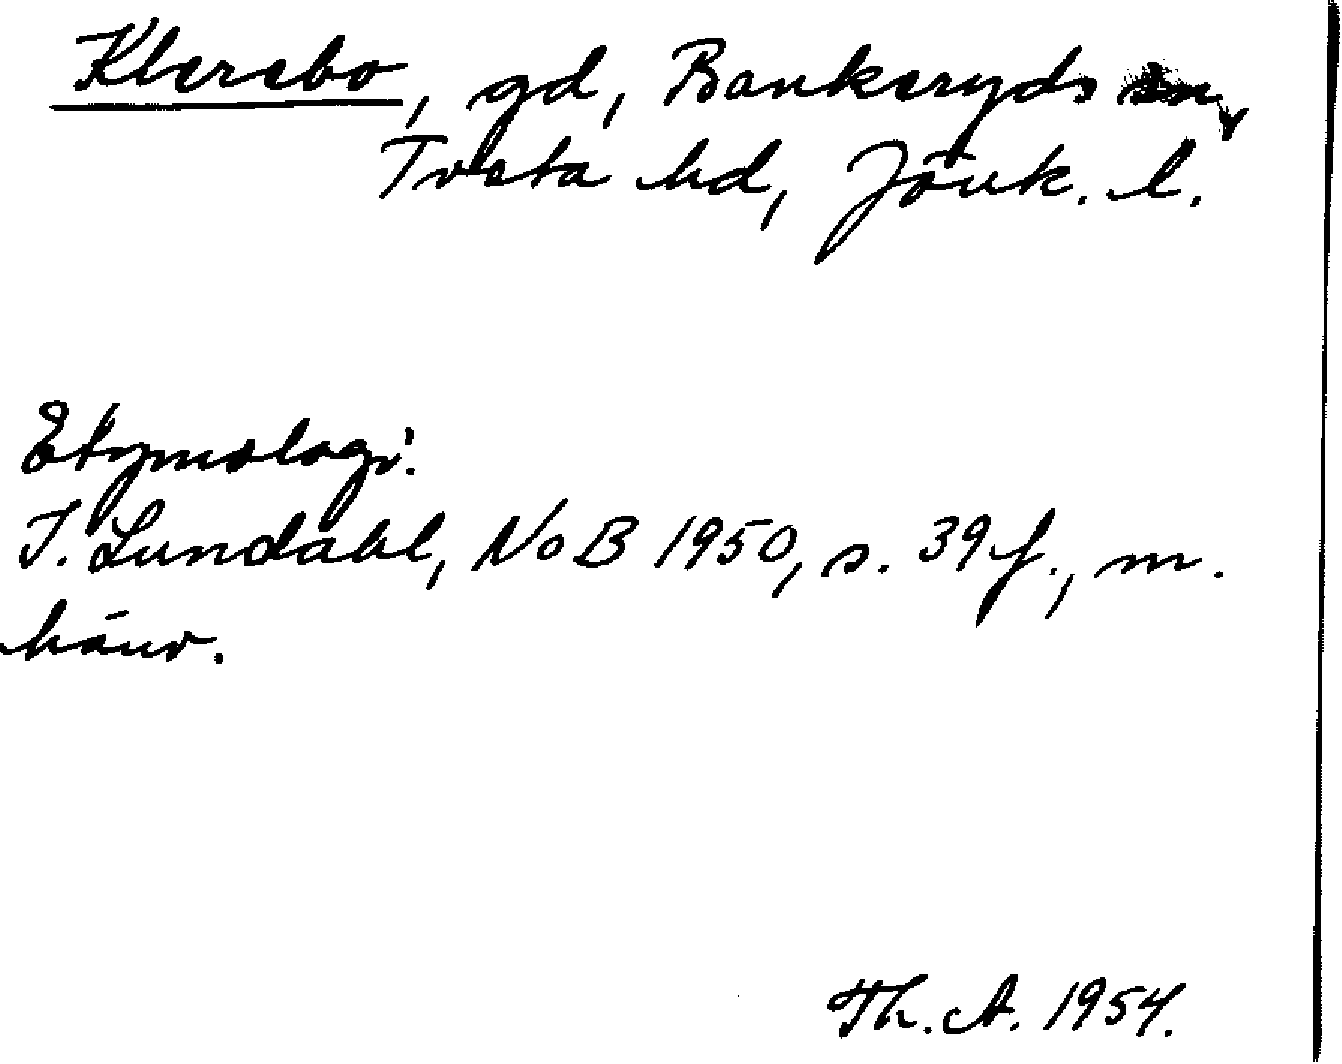 Klerebo, gd, Bankeryds sn,
Tveta hd, Jönk. l.
Etymologi:
I. Lundahl, NoB 1950, s. 39 f., m.
hänv.
Th. A. 1954.